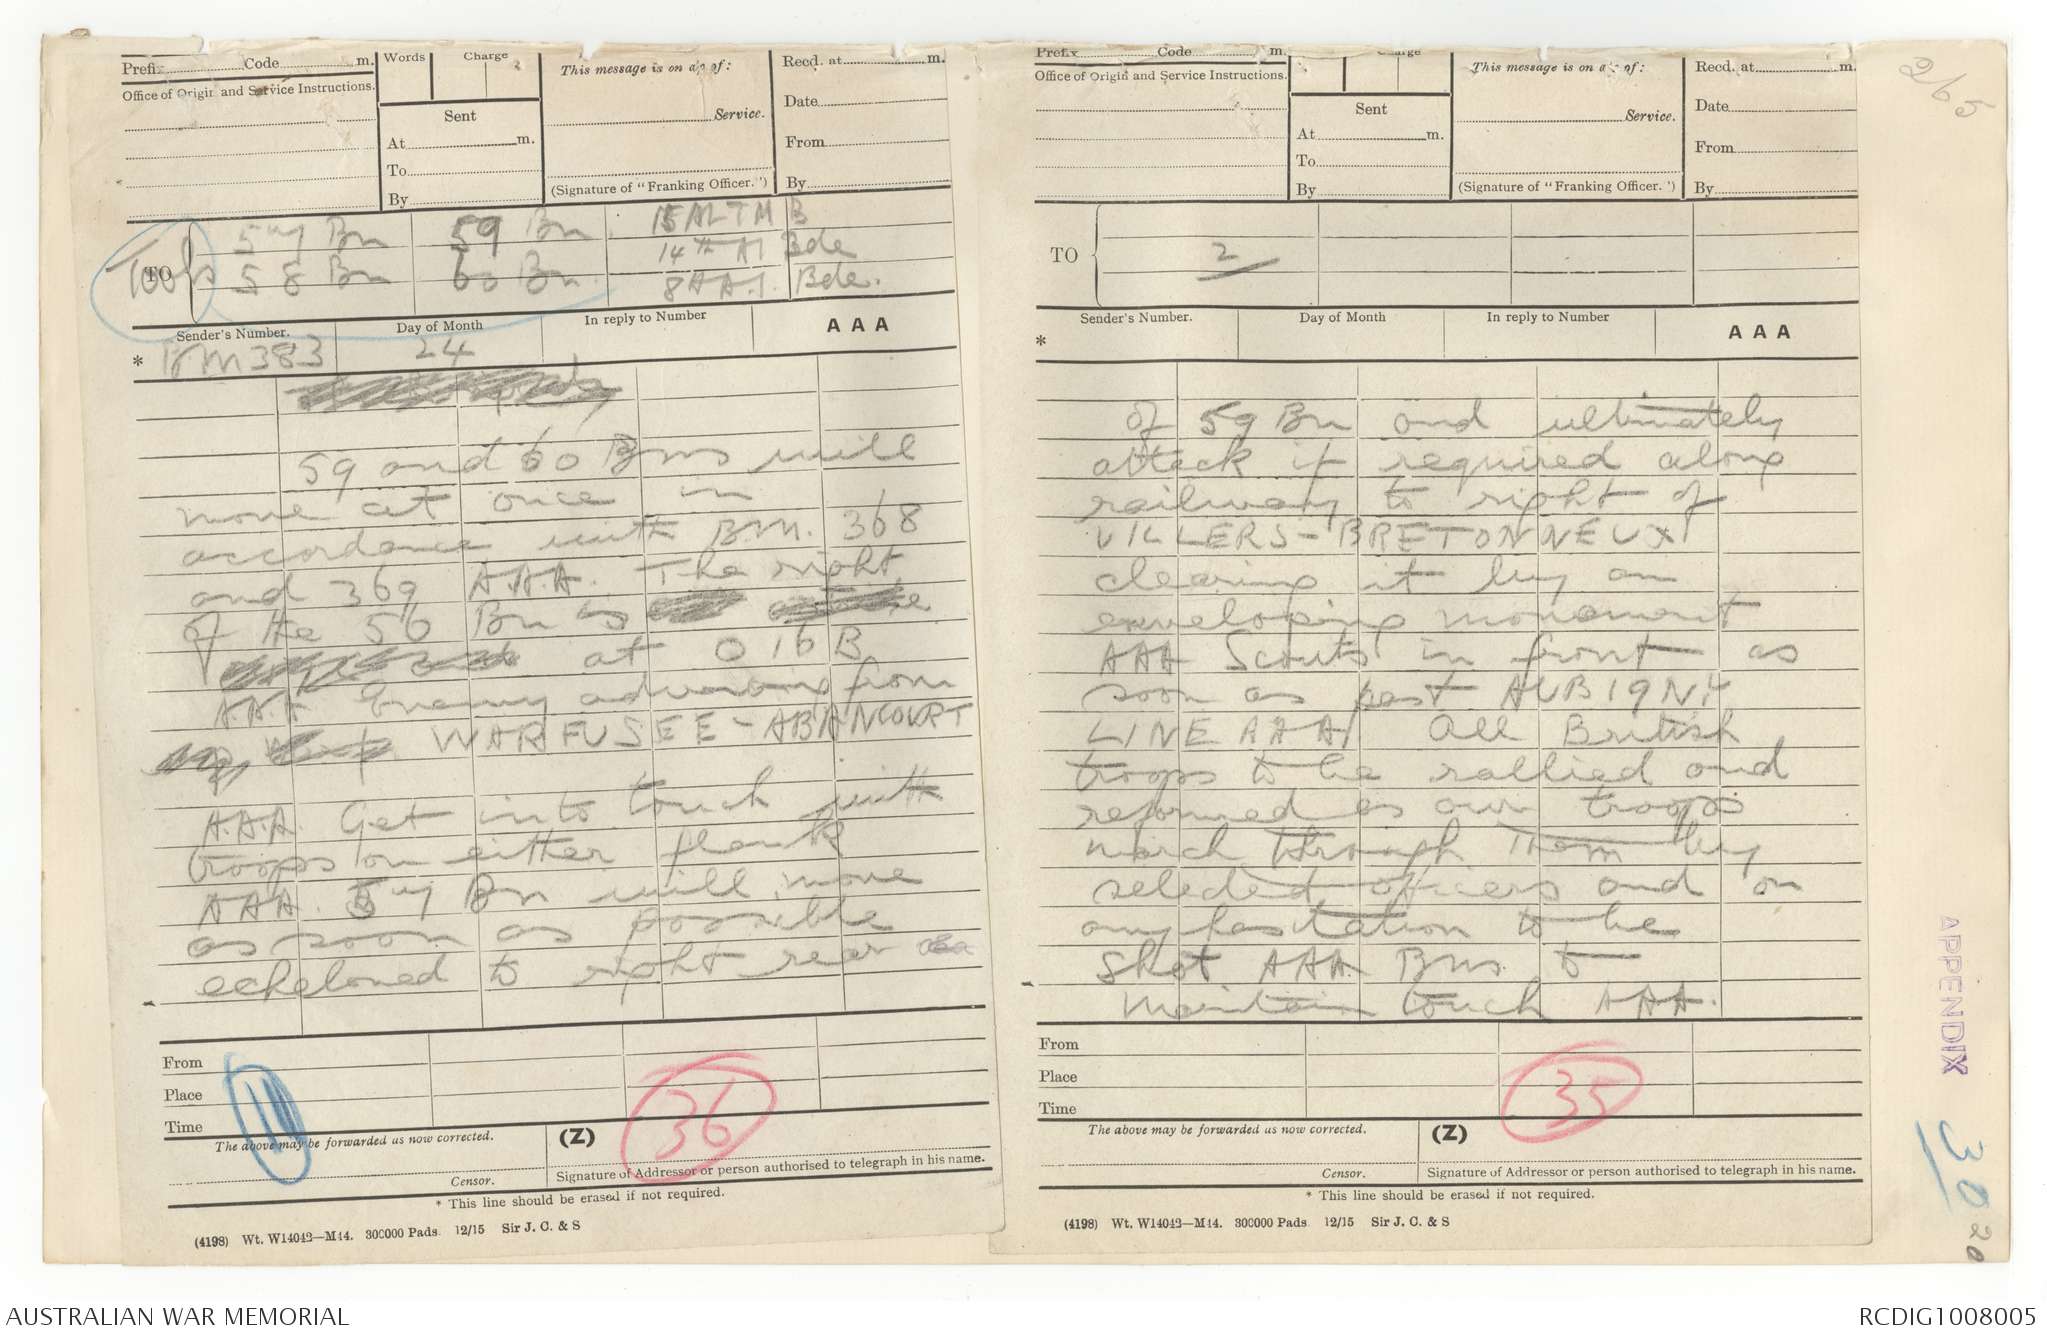 Prefix Code m.
Words Charge
This message is on a/c of:
Recd. at m.
Office of Origin and Service Instructions.
Sent
Date
At m.
Service.
From
To
By
(Signature of "Franking Officer.")
By
TO
57 Bn 59 Bn 15 ALTM B
58 Bn 60 Bn. 14th AI Bde
8 AA.I. Bde.
Sender's Number.
Day of Month
In reply to Number
AAA
* BM383 24
59 and 60 Bns will
move at once in
accordance with B.M. 368
and 369 A.A.A. The right
of the 56 Bn is
at O16B
A.A.A Enemy advancing from
WARFUSEE-ABANCOURT
A.A.A. Get into touch with
troops on either flank
AAA. 57 Bn will move
as soon as possible
echeloned to right rear
From
Place
Time
11
36
The above may be forwarded as now corrected.
(Z)
Censor.
Signature of Addressor or person authorised to telegraph in his name.
* This line should be erased if not required.
(4198) Wt. W14042—M44. 300000 Pads. 12/15 Sir J. C. & S
Prefix Code m.
Charge
This message is on a/c of:
Recd. at m.
Office of Origin and Service Instructions.
Sent
Date
At m.
Service.
From
To
By
(Signature of "Franking Officer.")
By
265
TO
2
Sender's Number.
Day of Month
In reply to Number
AAA
*
of 59 Bn and ultimately
attack if required along
railway to right of
VILLERS-BRETONNEUX
clearing it by an
enveloping movement
AAA Scouts in front as
soon as past AUBIGNY
LINE AAA All British
troops to be rallied and
reformed as our troops
march through them by
selected officers and on
any hesitation to be
shot AAA Bns. to
maintain touch AAA.
From
Place
Time
35
The above may be forwarded as now corrected.
(Z)
Censor.
Signature of Addressor or person authorised to telegraph in his name.
* This line should be erased if not required.
(4198) Wt. W14042—M44. 300000 Pads. 12/15 Sir J. C. & S
APPENDIX
30
20
AUSTRALIAN WAR MEMORIAL
RCDIG1008005